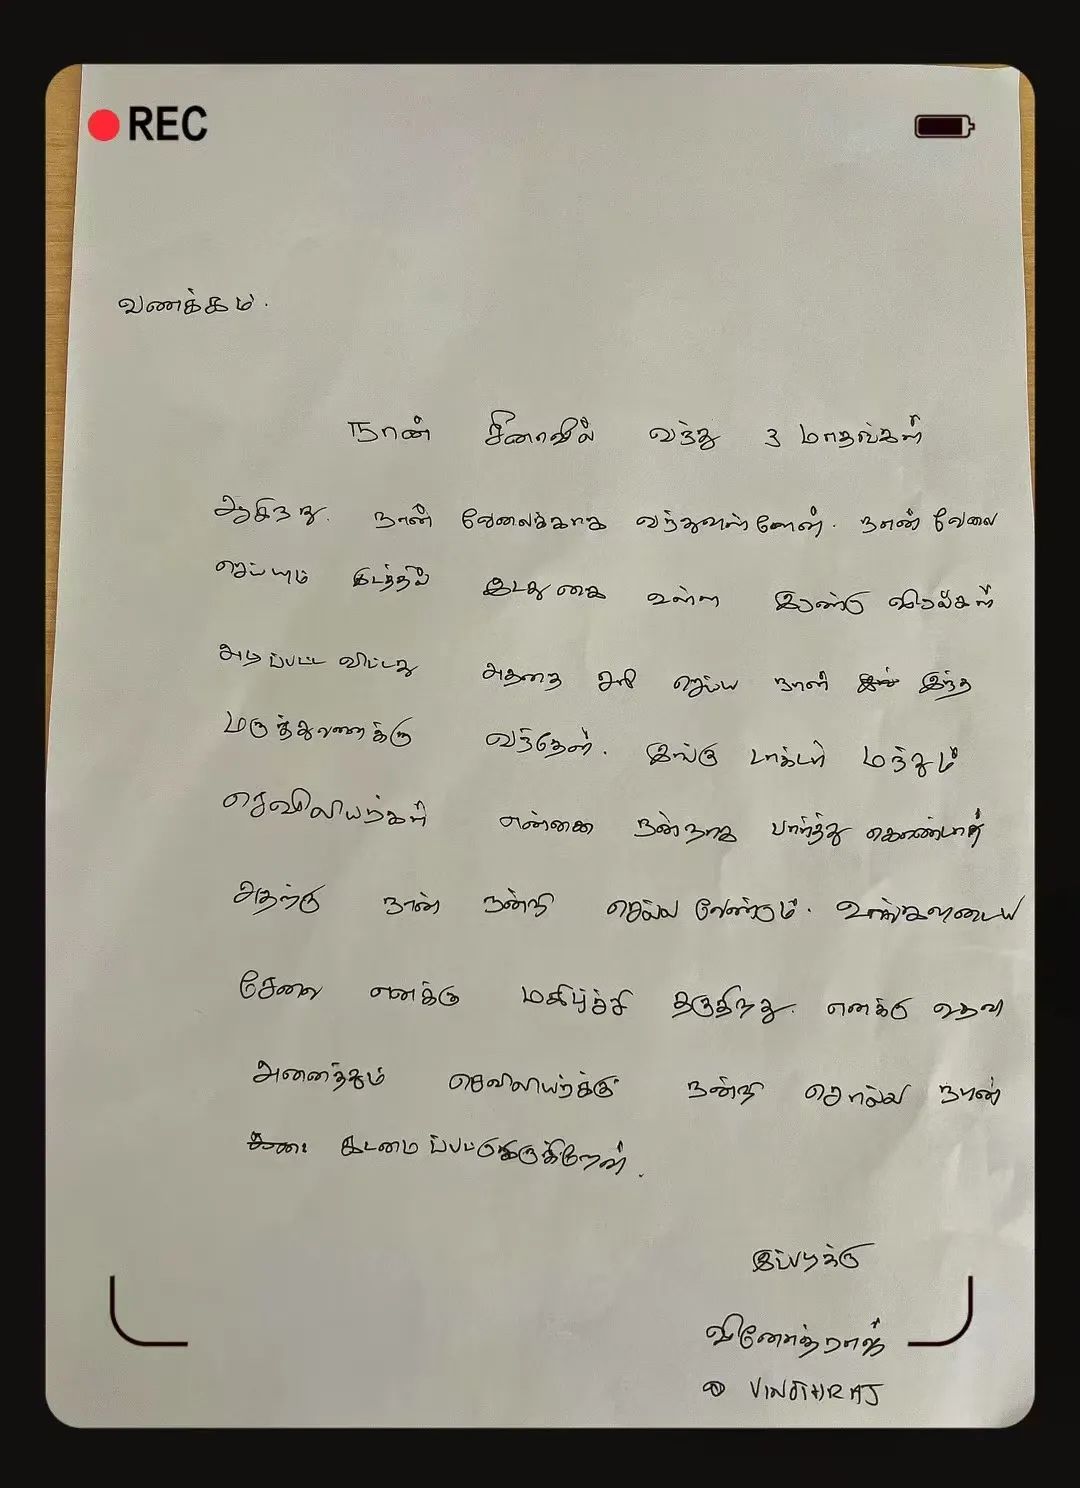 REC
வணக்கம்.
நான் சீனாவில் வந்து 3 மாதங்கள்
ஆகிறது. நான் வேலைக்காக வந்துள்ளேன். நான் வேலை
செய்யும் இடத்தில் இடது கை உள்ள இரண்டு விரல்கள்
அடிப்பட்ட விட்டது அதனை சரி செய்ய நான் இந்த
வந்தேன். இங்கு டாக்டர் மற்றும்
செவிலியர்கள் என்னை நன்றாக பார்த்து கொண்டார்
அதற்கு நான் நன்றி செல்ல வேண்டும்.
சேவை எனக்கு மகிழ்ச்சி தருகிறது. எனக்கு உதவி
அனைத்தும் செவிலியர்க்கு நன்றி சொல்ல நான்
இப்படிக்கு
வினோத்ராஜ்
VINOTHRAJ